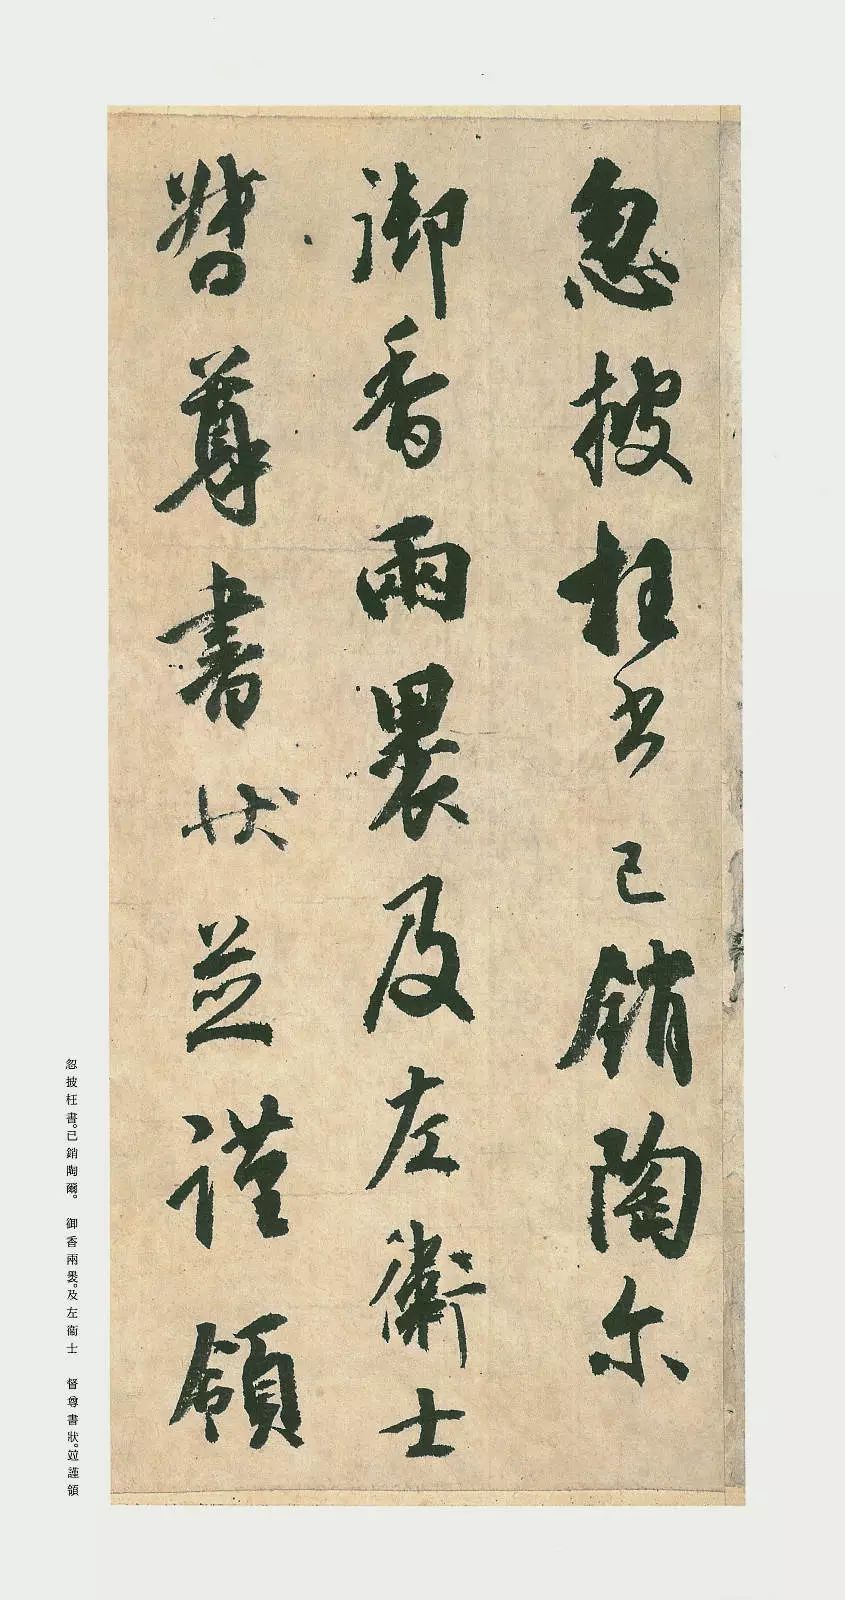 忽披枉书已銷陶尓
御香兩裹及左衛士
督尊書状並謹領
忽披枉書。已銷陶爾。 御香兩裹。及左衞士 督尊書狀。竝謹領